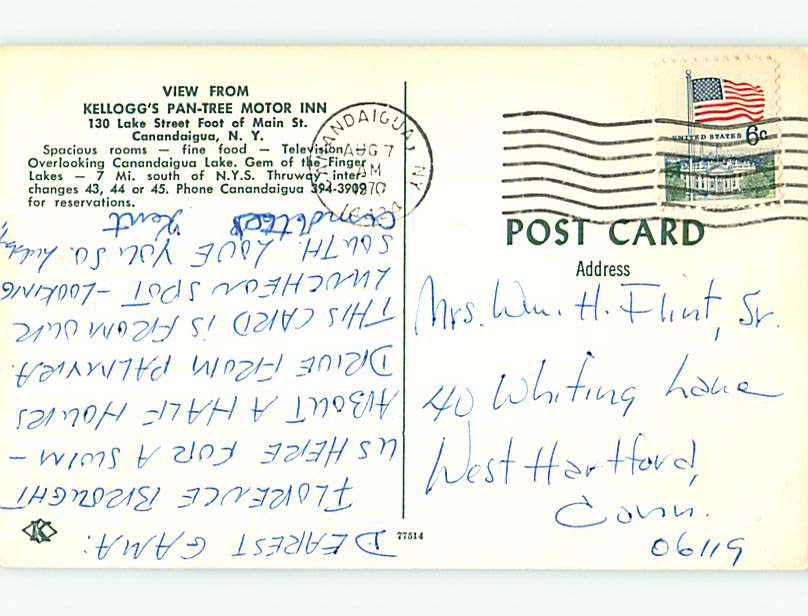 VIEW FROM
KELLOGG'S PAN-TREE MOTOR INN
130 Lake Street Foot of Main St.
Canandaigua, N. Y.
Spacious rooms — fine food — Television
Overlooking Canandaigua Lake. Gem of the Finger
Lakes — 7 Mi. south of N.Y.S. Thruway inter-
changes 43, 44 or 45. Phone Canandaigua 394-3909
for reservations.
CANANDAIGUA, NY
AUG 7
AM
1970
UNITED STATES 6c
POST CARD
Address
Mrs. Wm. H. Flint, Sr.
40 Whiting Lane
West Hartford,
Conn.
06119
DEAREST GAMA:
FLORENCE BROUGHT
US HERE FOR A SWIM –
ABOUT A HALF HOURS
DRIVE FROM PALMYRA.
THIS CARD IS FROM OUR
LUNCHEON SPOT – LOOKING
SOUTH. LOVE YOU SO.
Kent
K
77514